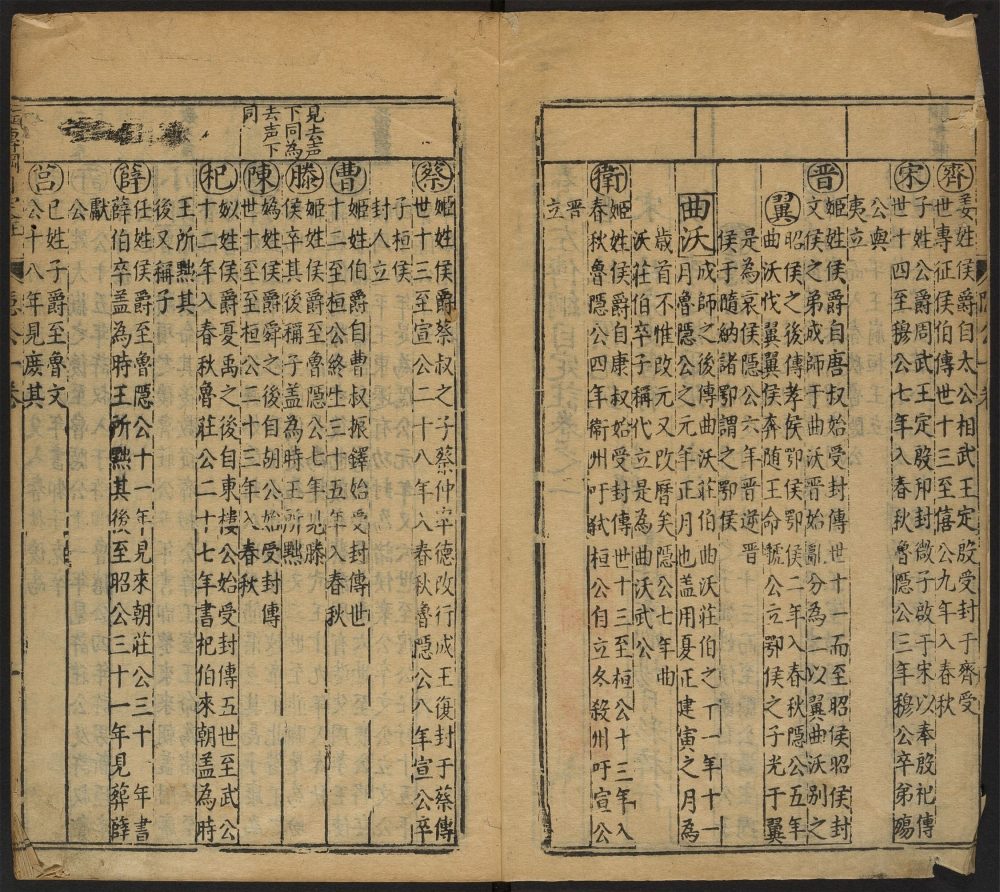 齊 姜姓侯爵自太公相武王定殷受封于齊受
世專征侯伯傳世十三至僖公九年入春秋
宋 子姓公爵周武王定殷卽封微子啟于宋以奉殷祀傳
世十四至穆公七年入春秋魯隱公三年穆公卒弟殤
公與
夷立
晉 姬姓侯爵自唐叔始受封傳世十一而至昭侯昭侯封
文侯之弟成師于曲沃晉始亂分為二以翼曲沃別之
翼 昭侯之後傳孝侯鄂侯鄂侯二年入春秋隱公五年
曲沃伐翼翼侯奔随王命虢公立鄂侯之子光于翼
是為哀侯隱公六年晉逆晉
侯于隨納諸鄂謂之鄂侯
曲沃 成師之後傳曲沃莊伯曲沃莊伯之十一年十一
月魯隱公之元年正月也盖用夏正建寅之月為
歲首不惟改元又改曆矣隱公七年曲
沃莊伯卒子稱代立是為曲沃武公
衛 姬姓侯爵自康叔始受封傳世十三至桓公十三年入
春秋魯隱公四年衛州吁弑桓公自立冬殺州吁宣公
晉
立
見去声
下同為
去声下
同
蔡 姬姓侯爵蔡叔之子蔡仲率德改行成王復封于蔡傳
世十三至宣公二十八年入春秋魯隱公八年宣公卒
子桓侯
封人立
曹 姬姓伯爵自曹叔振鐸始受封傳世
十二至桓公終生三十五年入春秋
滕 姬姓侯爵至魯隱公七年見滕
侯卒其後稱子盖為時王所黜
陳 媯姓侯爵舜之後自胡公始受封傳
世十二至桓公二十三年入春秋
杞 姒姓侯爵夏禹之後自東樓公始受封傳五世至武公
十二年入春秋魯莊公二十七年書杞伯來朝盖為時
王所黜其
後又稱子
薛 任姓侯爵至魯隱公十一年見來朝莊公三十一年書
薛伯卒盖為時王所黜其後至昭公三十一年見葬薛
獻
公
莒 己姓子爵至魯文
公十八年見庻其